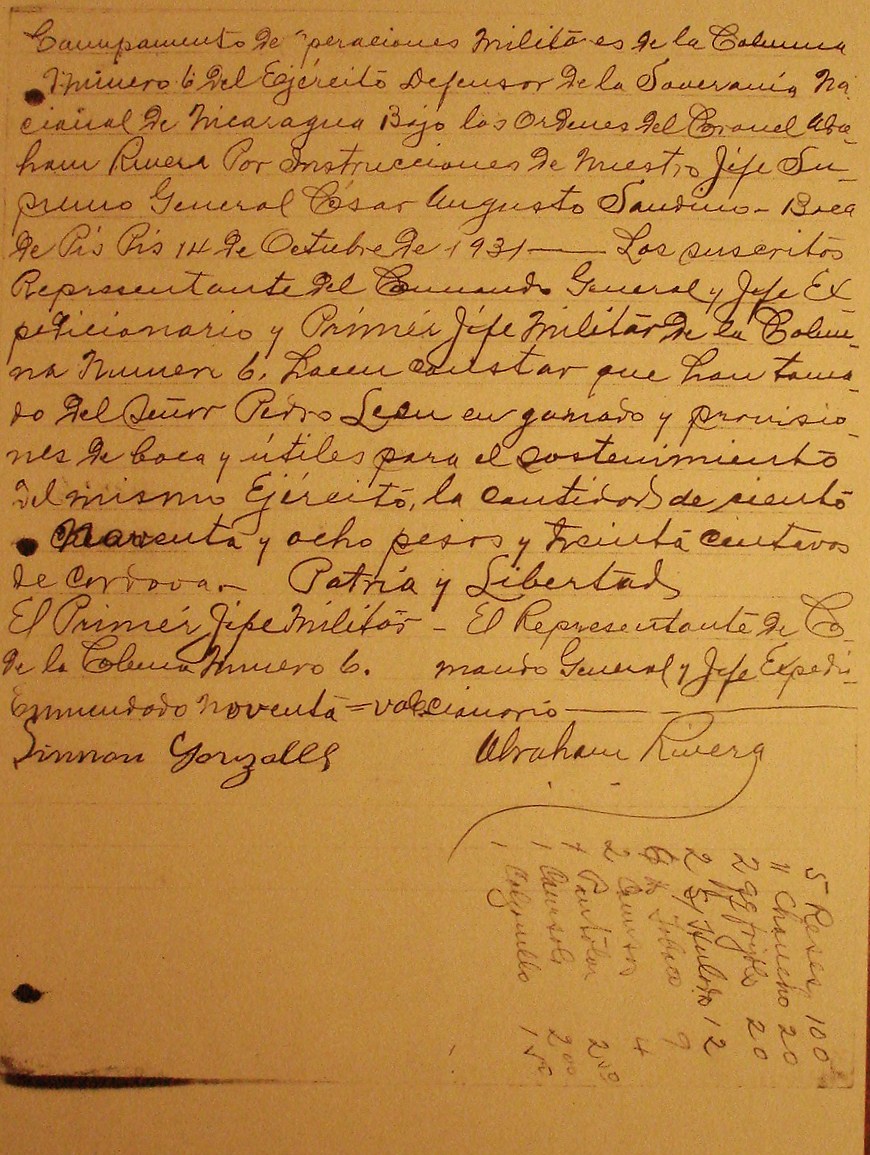 Campamento de Operaciones Militares de la Columna
Número 6 del Ejército Defensor de la Soverania Na
cional de Nicaragua Bajo las Ordenes del Coronel Abra
ham Rivera Por Instrucciones de Nuestro Jefe Su-
premo General César Augusto Sandino - Boca
de Pis Pis 14 de Octubre de 1931 — Los suscritos
Representante del Comando General y Jefe Ex
pedicionario y Primér Jéfe Militár de la Colum-
na Numero 6. hacen constar que han toma-
do del Señor Pedro León en ganado y provisio-
nes de boca y útiles para el sostenimiento
del mismo Ejército, la cantidad de ciento
y ocho pesos y treinta centavos
de cordova.- Patria y Libertad
El Primér Jéfe Militár - El Representante de Co-
de la Coluna Numero 6. mando General y Jefe Expedi-
Enmendado noventa = vale cionario —
Simon Gonzalез Abraham Rivera
5 Reses 100
11 Chancho 20
2 frijoles 20
2 Hulado 12
Tobaco 9
2 Camisas 4
1 Pantalon 2.50
1 Camisola 2.00
1 Calzonillo 1